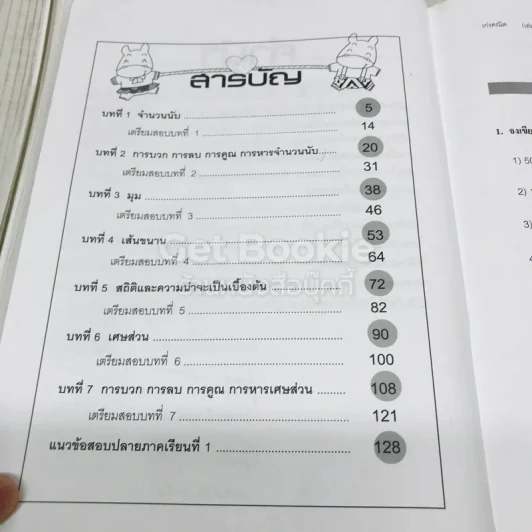 สารบัญ
บทที่ 1 จำนวนนับ ........ 5
เตรียมสอบบทที่ 1 ........ 14
บทที่ 2 การบวก การลบ การคูณ การหารจำนวนนับ ...... 20
เตรียมสอบบทที่ 2 ........ 31
บทที่ 3 มุม ........ 38
เตรียมสอบบทที่ 3 ........ 46
บทที่ 4 เส้นขนาน ........ 53
Get Bookie
เตรียมสอบบทที่ 4 ........ 64
ร้านหนังสือบุ๊กกี้
บทที่ 5 สถิติและความน่าจะเป็นเบื้องต้น ........ 72
เตรียมสอบบทที่ 5 ........ 82
บทที่ 6 เศษส่วน ........ 90
เตรียมสอบบทที่ 6 ........ 100
บทที่ 7 การบวก การลบ การคูณ การหารเศษส่วน ........ 108
เตรียมสอบบทที่ 7 ........ 121
แนวข้อสอบปลายภาคเรียนที่ 1 ........ 128
เก่งคณิต
1. จงเขีย
1) 50
2)
3)